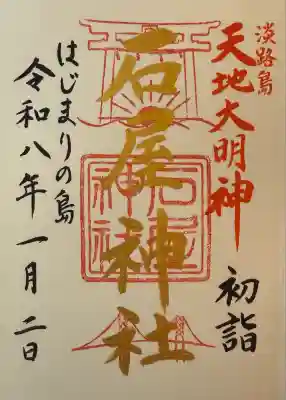 淡路島
天地大明神
初詣
石屋神社
石屋
神社
はじまりの島
令和八年一月二日